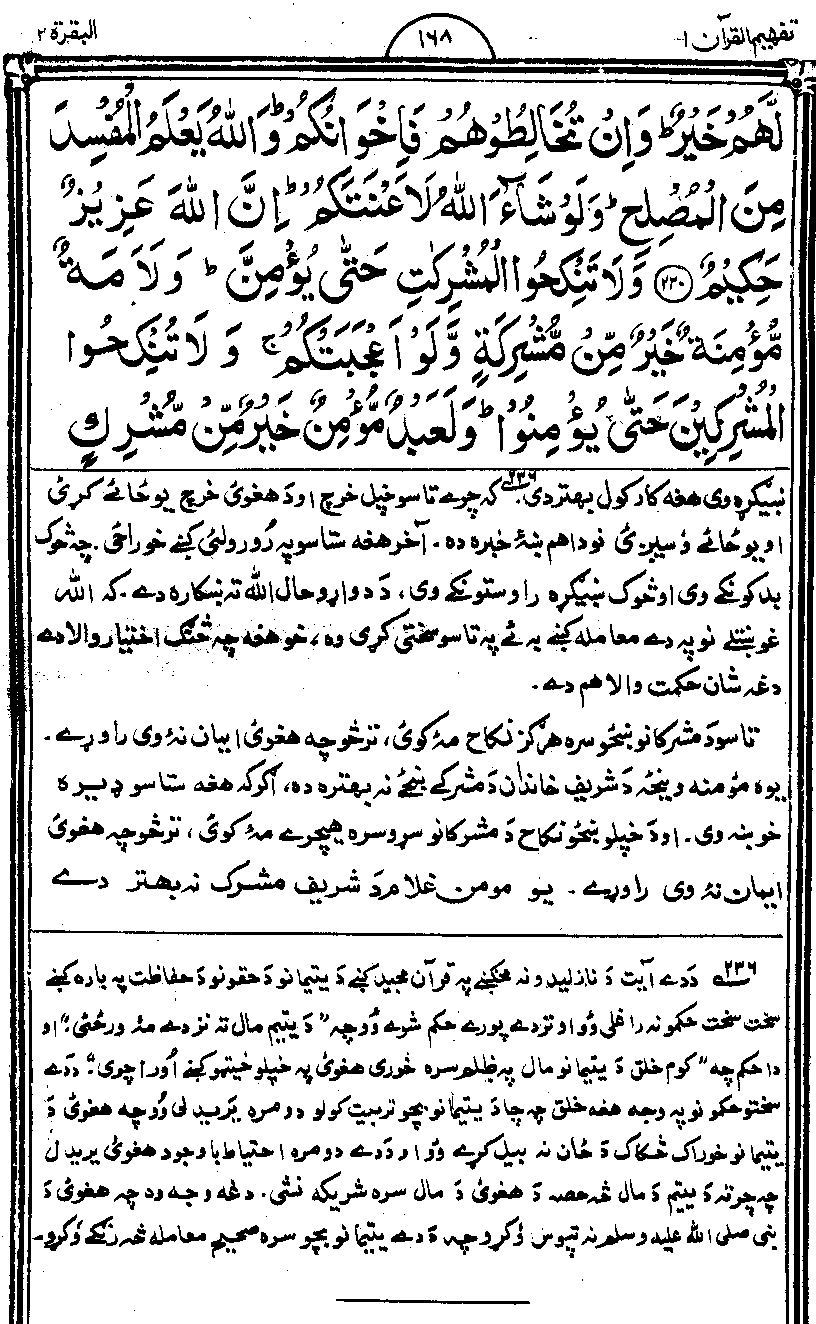 تفهيم القرآن ١
١٦٨
البقرة ٢
لَّهُمْ خَيْرٌ ؕ وَاِنْ تُخَالِطُوْهُمْ فَاِخْوَانُكُمْ ؕ وَاللّٰهُ يَعْلَمُ الْمُفْسِدَ
مِنَ الْمُصْلِحِ ؕ وَلَوْ شَآءَ اللّٰهُ لَاَعْنَتَكُمْ ؕ اِنَّ اللّٰهَ عَزِيْزٌ
حَكِيْمٌ ﴿٢٢٠﴾ وَلَا تَنْكِحُوا الْمُشْرِكٰتِ حَتّٰى يُؤْمِنَّ ؕ وَلَاَمَةٌ
مُّؤْمِنَةٌ خَيْرٌ مِّنْ مُّشْرِكَةٍ وَّلَوْ اَعْجَبَتْكُمْ ۚ وَلَا تُنْكِحُوا
الْمُشْرِكِيْنَ حَتّٰى يُؤْمِنُوْا ؕ وَلَعَبْدٌ مُّؤْمِنٌ خَيْرٌ مِّنْ مُّشْرِكٍ
ښېګړه وی هغه کار کول بهتر دی. ٢٣٦ که چرے تاسو خپل خرچ او د هغوئ خرچ یو ځائے کړئ
او یو ځائے وسیږئ نو دا هم ښهٔ خبره ده. آخر هغه ستاسو په رُورولئ کښے خو راځی. چه څوک
بد کوونکے وی او څوک ښېګړه راوستونکے وی، د دواړو حال الله ته ښکاره دے. که الله
غوښتلے نو په دے معامله کښے به ئے په تاسو سختی کړی وه، خو هغه چه څنګ اختیار والا دے
دغه شان حکمت والا هم دے.
تاسو د مشرکانو ښځو سره هرګز نکاح مهٔ کوئ، ترڅو چه هغوئ ایمان نهٔ وی راوړے.
یوه مؤمنه وینځه د شریف خاندان د مشرکے ښځے نه بهتره ده، اګرکه هغه ستاسو ډیره
خوښه وی. او د خپلو ښځو نکاح د مشرکانو سړو سره هیچرے مهٔ کوئ، ترڅو چه هغوئ
ایمان نهٔ وی راوړے. یو مومن غلام د شریف مشرک نه بهتر دے
٢٣٦ د دے آیت د نازلیدو نه مخکښے په قرآن مجید کښے د یتیمانو د حقونو د حفاظت په باره کښے
سخت سخت حکمونه راغلی وُو او تر دے پورے حکم شوے وُو چه "د یتیم مال ته نزدے مهٔ ورځئ"، او
دا حکم چه "کوم خلق د یتیمانو مال په ظلم سره خوری هغوئ په خپلو خیټو کښے اُور اچوی"، د دے
سختو حکمونو په وجه هغه خلق چه چا د یتیمانو بچو تربیت کولو دومره یریدلی وُو چه هغوئ د
یتیمانو خوراک څکاک د ځان نه بیل کړے وُو او د دے دومره احتیاط باوجود هغوئ یریدل
چه چرته د یتیم د مال څه حصه د هغوئ د مال سره شریکه نشی. دغه وجه وه چه هغوئ د
نبی صلی الله علیه وسلم نه تپوس وُکړو چه د دے یتیمانو بچو سره صحیح معامله څه رنګے وُکړو.